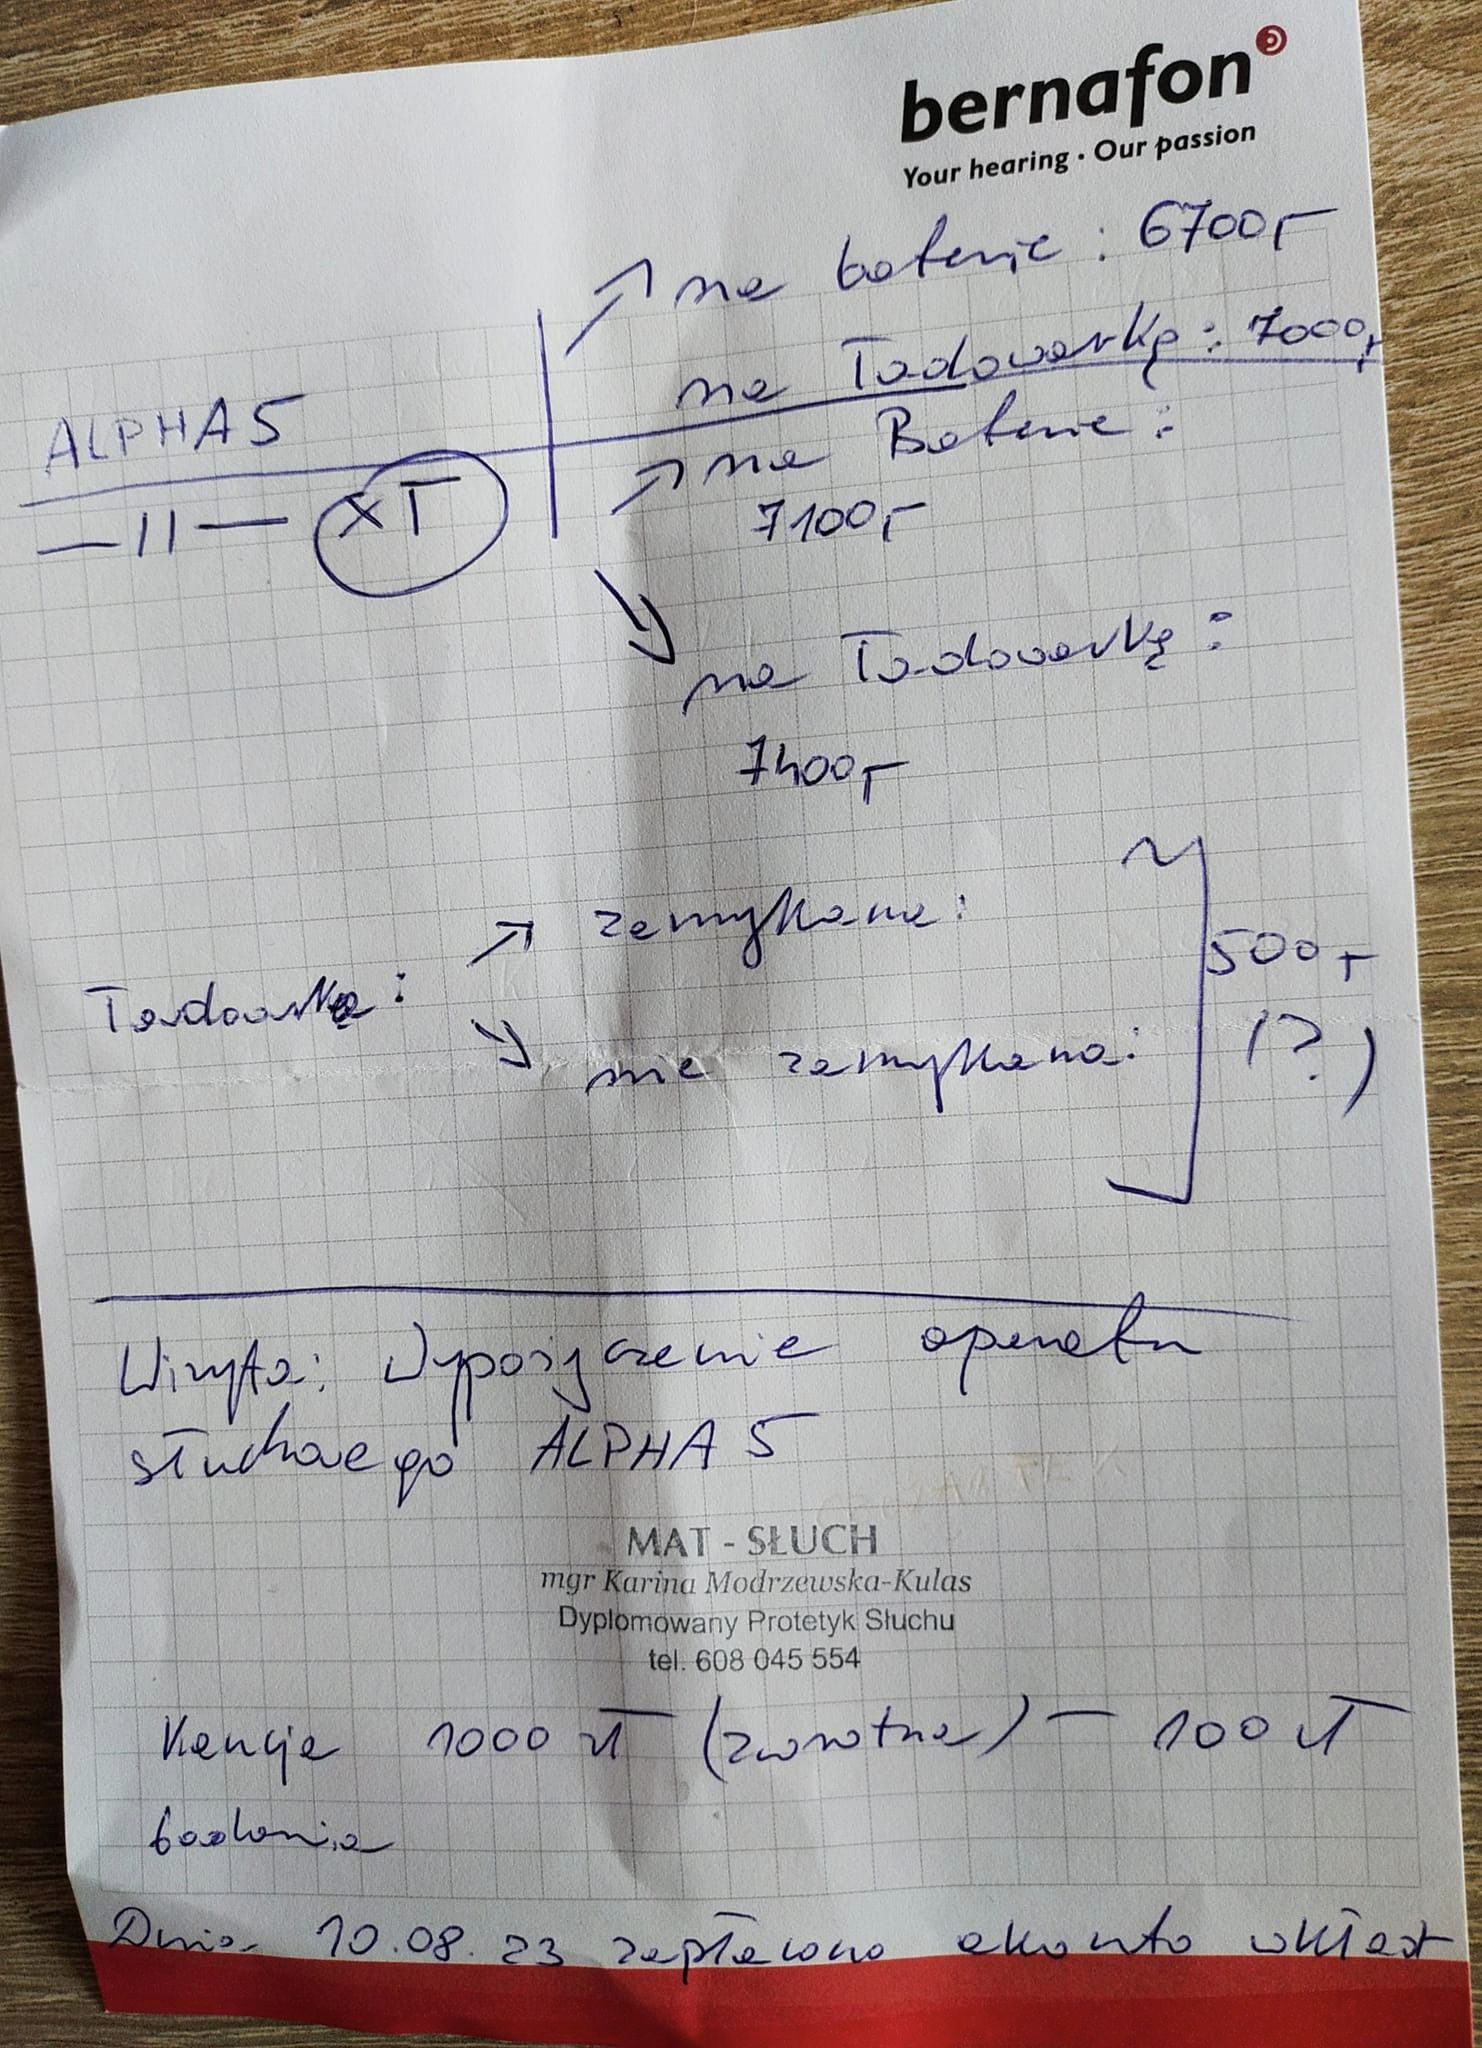 bernafon
Your hearing · Our passion
na baterie : 6700,-
ALPHA 5
na ładowarkę : 7000,-
—||— XT
na Baterie :
7100,-
na ładowarkę :
7400,-
Ładowarka:
zamykana:
nie zamykana:
500,-
(?)
Wizyta: Wypożyczenie aparatu
słuchowego ALPHA 5
MAT - SŁUCH
mgr Karina Modrzewska-Kulas
Dyplomowany Protetyk Słuchu
tel. 608 045 554
Kaucja 1000 zł (zwrotna) — 100 zł
badania
Dnia 10.08.23 zapłacono akonto wkład